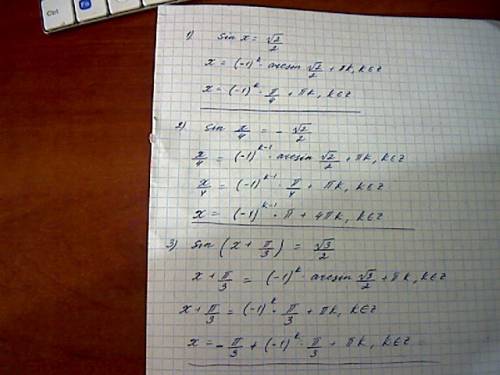 Ctrl
Fn
1) sin x = √2/2
x = (-1)^k · arcsin √2/2 + πk, k∈z
x = (-1)^k · π/4 + πk, k∈z
2) sin x/4 = - √2/2
x/4 = (-1)^(k-1) · arcsin √2/2 + πk, k∈z
x/4 = (-1)^(k-1) · π/4 + πk, k∈z
x = (-1)^(k-1) · π + 4πk, k∈z
3) sin (x + π/3) = √3/2
x + π/3 = (-1)^k · arcsin √3/2 + πk, k∈z
x + π/3 = (-1)^k · π/3 + πk, k∈z
x = - π/3 + (-1)^k · π/3 + πk, k∈z